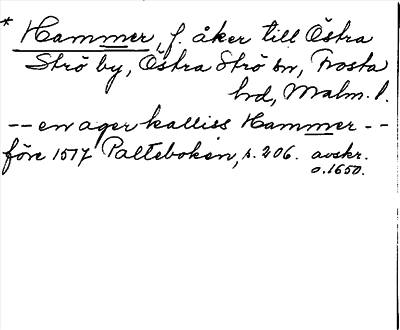 * Hammer, f. åker till Östra
Strö by, Östra Strö sn, Frosta
hd, Malm. l.
-- en ager kalliss Hammer --
före 1517 Palteboken, s. 206. avskr.
o. 1650.